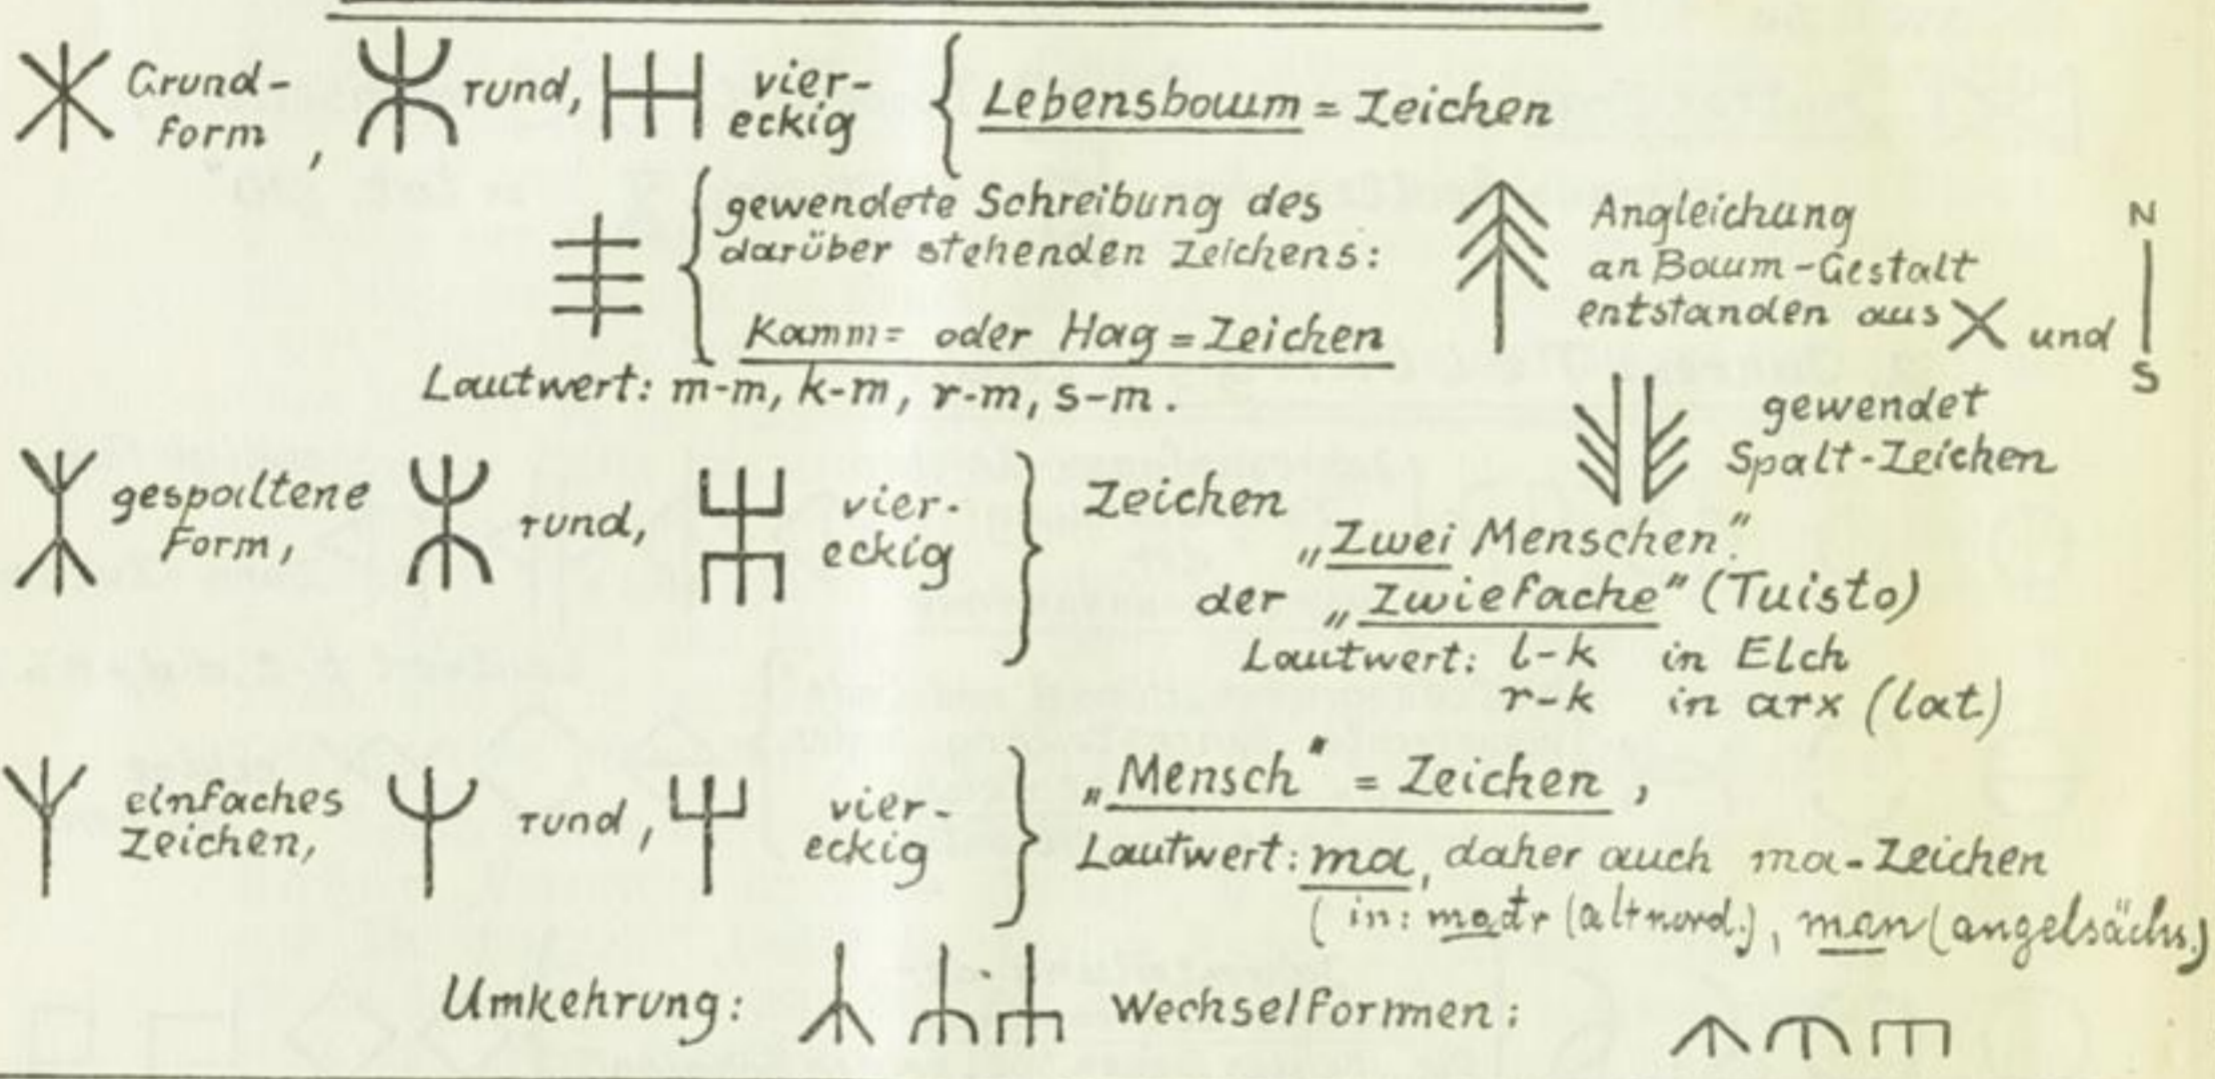 Grund- rund, vier- Lebensbaum = Zeichen
form , eckig
gewendete Schreibung des
darüber stehenden Zeichens:
Kamm= oder Hag = Zeichen
Lautwert: m-m, k-m, r-m, s-m.
Angleichung
an Baum-Gestalt
entstanden aus X und
N
S
gewendet
Spalt-Zeichen
gespaltene rund, vier-
Form, eckig
Zeichen
„Zwei Menschen"
der „Zwiefache" (Tuisto)
Lautwert: l-k in Elch
r-k in arx (lat.)
einfaches rund, vier-
Zeichen, eckig
„Mensch" = Zeichen ,
Lautwert: ma, daher auch ma-Zeichen
( in: madr (altnord.), man (angelsächs.)
Umkehrung: Wechselformen: